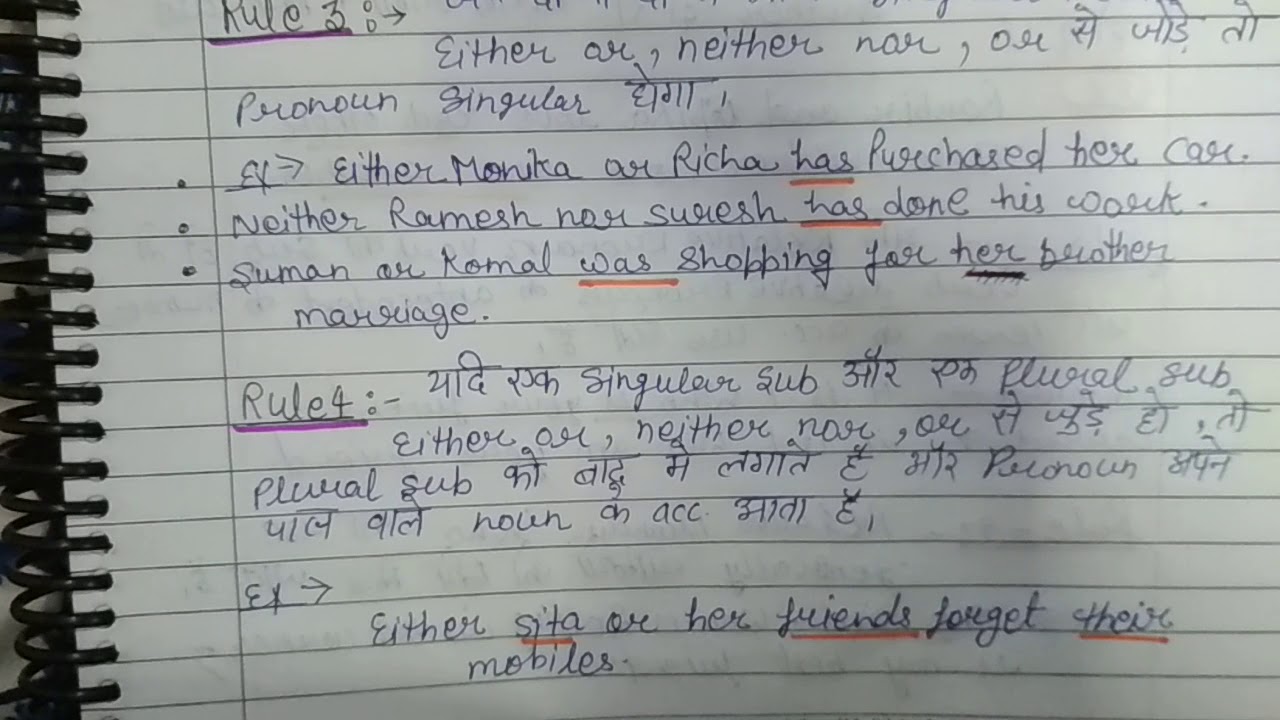 Rule 3 :→
Either or, neither nor, or से जोड़े तो
Pronoun Singular होगा,
Ex → Either Monika or Richa has Purchased her Car.
Neither Ramesh nor suresh has done his work.
Suman or Komal was shopping for her brother
marriage.
Rule 4 :- यदि एक singular sub और एक plural sub
Either or, neither nor, or से जुड़े हो, तो
Plural sub को बाद मे लगाते है और Pronoun अपने
पास वाले noun के acc. आता है,
Ex →
Either sita or her friends forget their
mobiles.